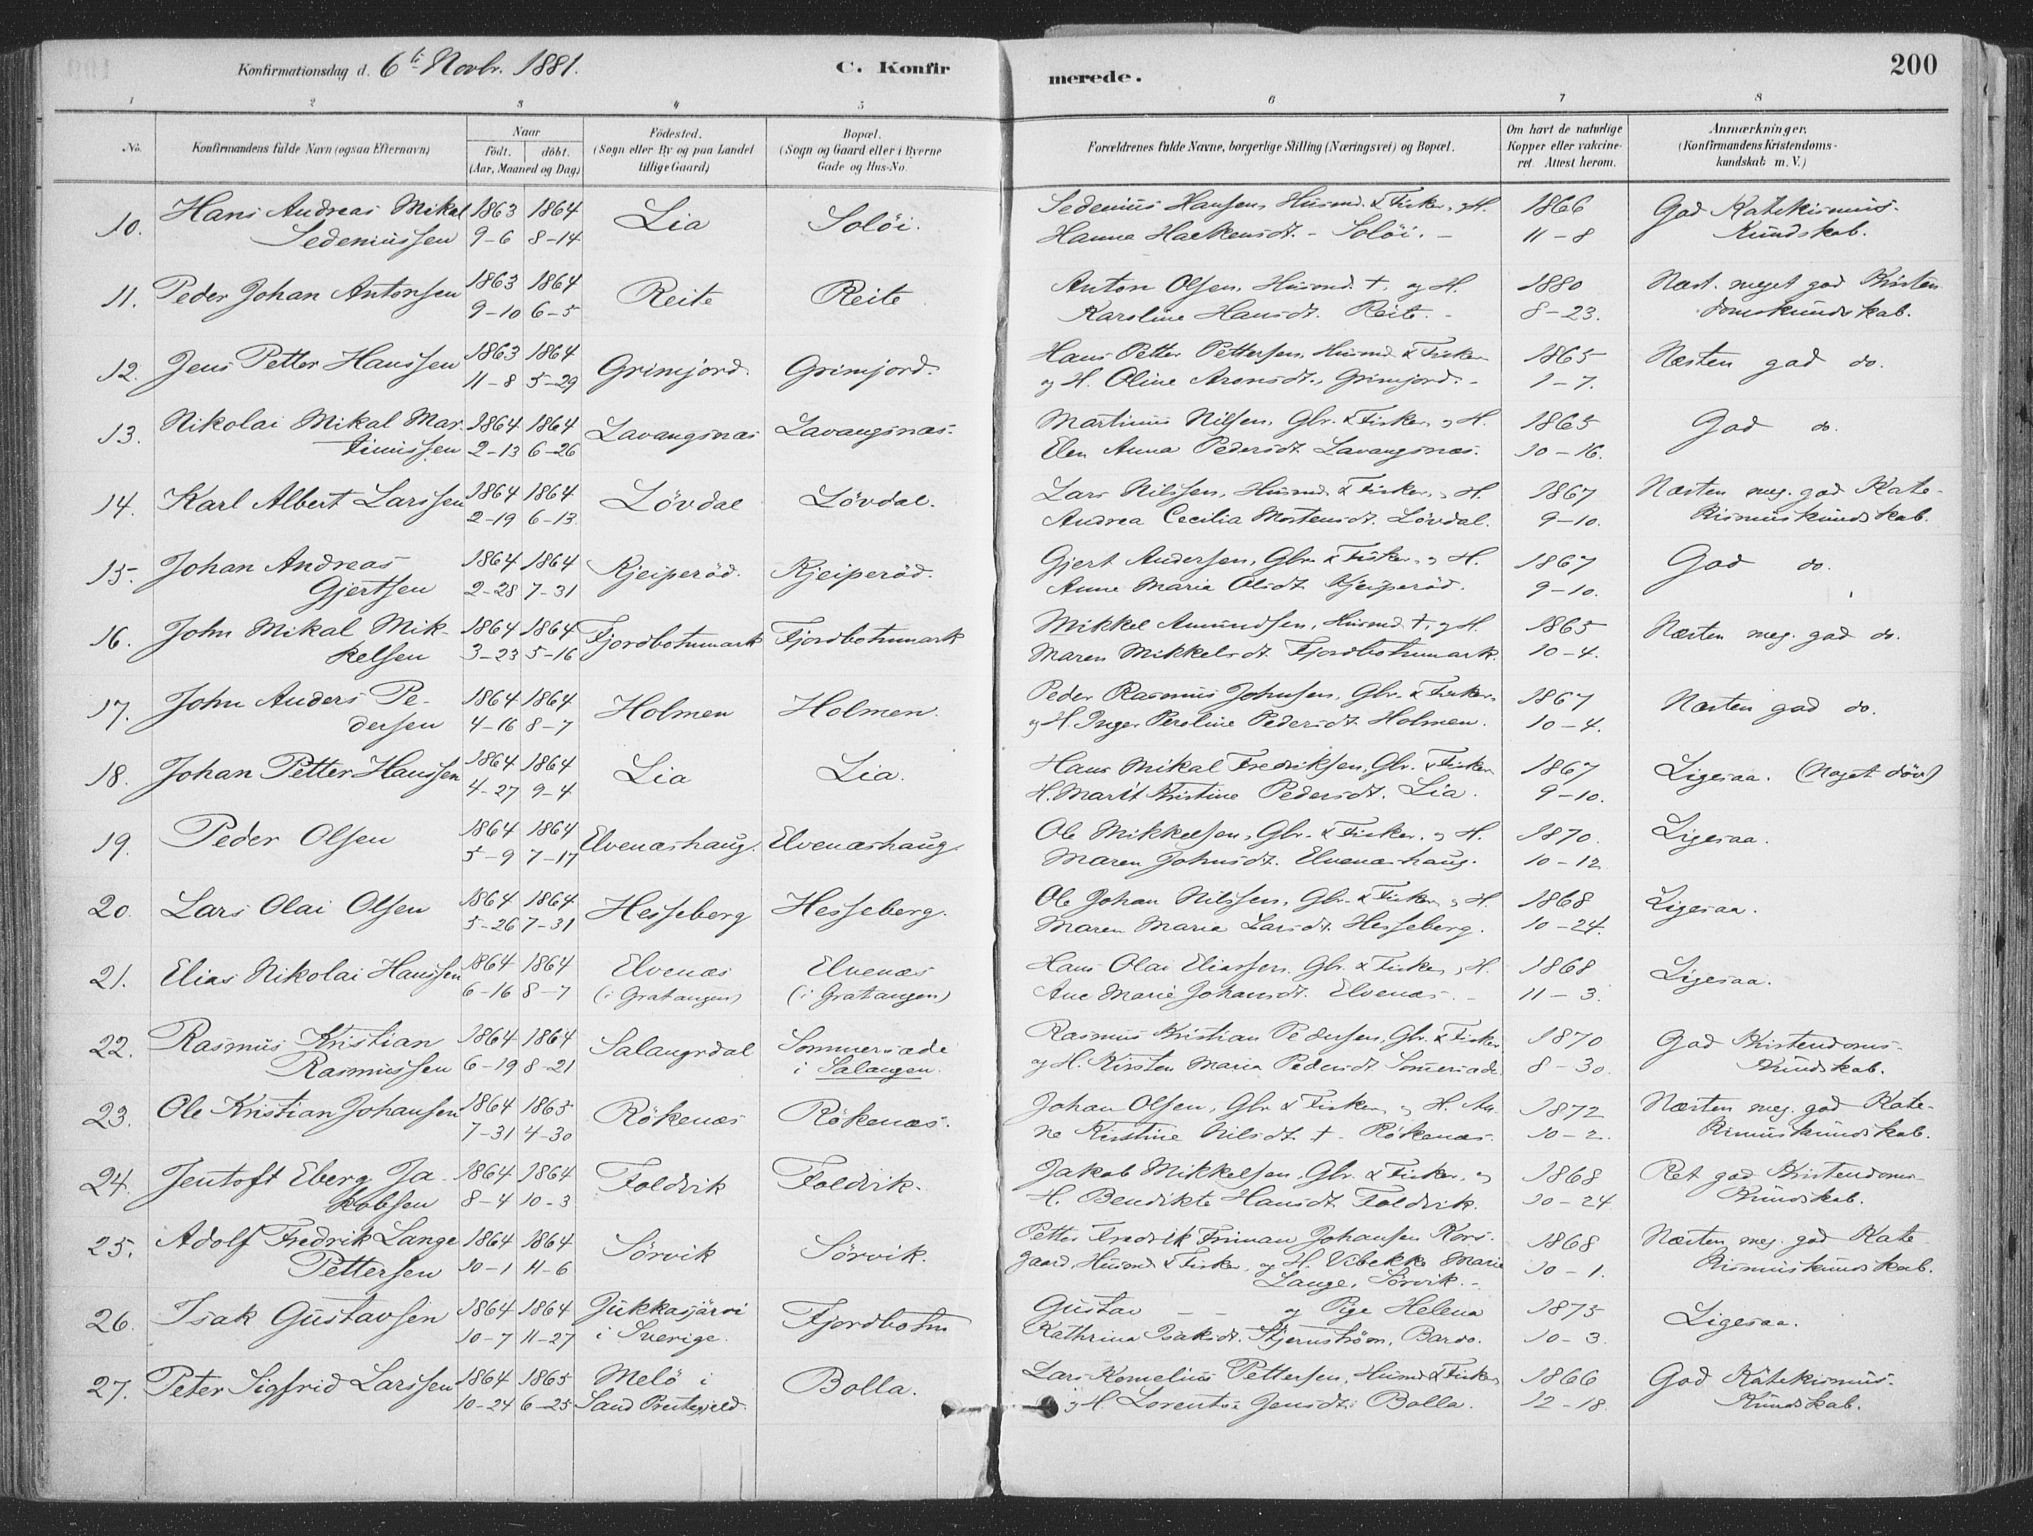 Konfirmationsdag d. 6te Novbr. 1881.
C. Konfir
merede.
200
1 2 3 4 5 6 7 8
No.
Konfirmandens fulde Navn (ogsaa Efternavn)
Naar
födt. döbt.
(Aar, Maaned og Dag)
Födested.
(Sogn eller By og paa Landet
tillige Gaard)
Bopæl.
(Sogn og Gaard eller i Byerne
Gade og Hus-No.
Forældrenes fulde Navne, borgerlige Stilling (Næringsvei) og Bopæl.
Om havt de naturlige
Kopper eller vakcine-
ret. Attest herom.
Anmærkninger.
(Konfirmandens Kristendoms-
kundskab m. V.)
Hans Andreas Mikal 1863 1864 Lia Solöi. Sedenius Hansen, Husmd. & Fisker, og H. 1866 God Katekismus-
10. Sedeniussen 9-6 8-14 Hanna Haekensdt. - Solöi. - 11-8 Kundskab.
11. Peder Johan Antonsen 1863 1864 Reite Reite Anton Olsen, Husmd. †, og H. 1880 Næst. meget god Kristen
9-10 6-5 Karoline Hansdt. Reite. - 8-23. domskundskab.
12. Jens Petter Hanssen 1863 1864 Grimjord. Grimjord. Hans Petter Pettersen, Husmd. & Fisker 1865 Næsten god do.
11-8 5-29 og H. Oline Aronsdt., Grimjord. - 1-7.
13. Nikolai Mikal Mar- 1864 1864 Lavangsnæs Lavangsnæs. Martinus Nilsen, Gbr. & Fisker, og H. 1865 God do.
tinussen 2-13 6-26 Elen Anna Pedersdt. Lavangsnæs. 10-16.
14. Karl Albert Larssen 1864 1864 Lövdal Lövdal. Lars Nilssen, Husmd. & Fisker, og H. 1867 Næsten meg. god Kate-
2-19 6-13 Andrea Cecilia Mortensdt. Lövdal. 9-10. kismuskundskab.
15. Johan Andreas 1864 1864 Kjeiperöd. Kjeiperöd. Gjert Andersen, Gbr. & Fisker, og H. 1867 God do.
Gjertsen 2-28 7-31 Anne Maria Olsdt. Kjeiperöd. 9-10.
16. John Mikal Mik- 1864 1864 Fjordbotnmark Fjordbotnmark Mikkel Amundsen, Husmd. †, og H. 1865 Næsten meg. god do.
kelsen 3-23 5-16 Maren Mikkelsdt. Fjordbotnmark. 10-4.
17. John Anders Pe- 1864 1864 Holmen Holmen. Peder Rasmus Johnsen, Gbr. & Fisker, 1867 Næsten god do.
dersen 4-16 8-7 og H. Inger Peroline Pedersdt. Holmen. 10-4.
18. Johan Petter Hanssen 1864 1864 Lia Lia. Hans Mikal Fredriksen, Gbr. & Fisker 1867 Ligesaa. (Noget döv)
4-27 9-4 H. Marit Kristine Pedersdt. Lia. 9-10.
19. Peder Olsen 1864 1864 Elvenæshaug. Elvenæshaug. Ole Mikkelsen, Gbr. & Fisker, og H. 1870. Ligesaa.
5-9 7-17 Maren Johnsdt. Elvenæshaug. 10-12
20. Lars Olai Olsen 1864 1864 Hesseberg Hesseberg. Ole Johan Nilssen, Gbr. & Fisker, og H. 1868 Ligesaa.
5-26 7-31 Maren Maria Larsdt. Hesseberg. 10-24.
21. Elias Nikolai Hanssen 1864 1864 Elvenæs Elvenæs Hans Olai Eliassen, Gbr. & Fisker, og H. 1868 Ligesaa.
6-16 8-7 (i Gratangen) (i Gratangen) Ane Marie Johansdt. Elvenæs. - 11-3.
22. Rasmus Kristian 1864 1864 Salangsdal Sommersæde Rasmus Kristian Pedersen, Gbr. & Fisker, 1870 God Kristendoms-
Rasmussen 6-19 8-21 i Salangen. og H. Kirsten Maria Pedersdt. Sommersæde 8-30. Kundskab.
23. Ole Kristian Johansen 1864 1865 Rökenæs Rökenæs. Johan Olsen, Gbr. & Fisker, og H. An- 1872 Næsten meg. god Kate-
7-31 4-30 ne Kirstine Nilsdt. †. Rökenæs. 10-2. kismuskundskab.
24. Jentoft Eberg Ja- 1864 1864 Foldvik Foldvik. Jakob Mikkelsen, Gbr. & Fisker, og 1868 Ret god Kristendoms-
kobsen 8-4 10-3 H. Bendikte Hansdt. Foldvik. 10-24 Kundskab.
25. Adolf Fredrik Lange 1864 1864 Sörvik Sörvik. Petter Fredrik Friman Johansen Kors- 1868 Næsten meg. god Kate
Pettersen 10-1 11-6 gaard, Husmd. & Fisker, og H. Vibekke Marie 10-1. kismuskundskab.
Lange, Sörvik. -
26. Isak Gustavsen 1864 1864 Jukkasjärvi Fjordbotn Gustav - - og Pige Helena 1875 Ligesaa.
10-7 11-27 i Sverige. Kathrina Isaksdt. Stjernström, Bardo. 10-3.
27. Peter Sigfrid Larssen 1864 1865 Melö i Bolla. Lars Kornelius Pettersen, Husmd. & Fisker 1866 God Katekismus-
10-24 6-25 Sand Præstegjeld. og H. Lorentse Jensdt. Bolla. 12-18. Kundskab.